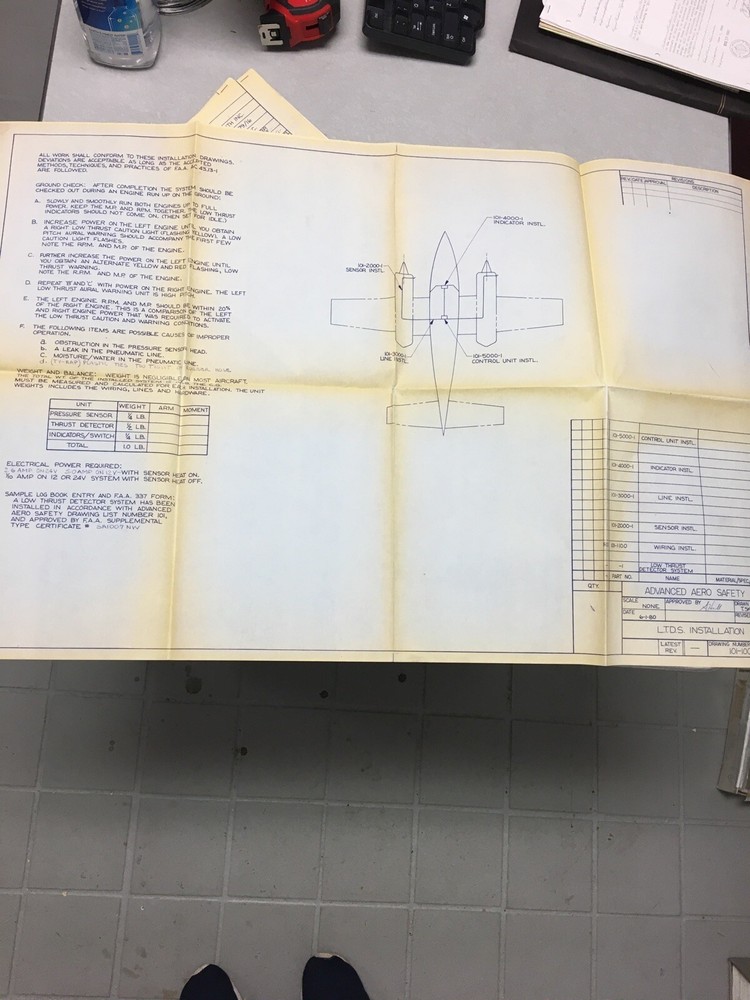 ALL WORK SHALL CONFORM TO THESE INSTALLATION DRAWINGS.
DEVIATIONS ARE ACCEPTABLE AS LONG AS THE ACCEPTED
METHODS, TECHNIQUES, AND PRACTICES OF F.A.A. AC 43.13-1
ARE FOLLOWED.
GROUND CHECK: AFTER COMPLETION THE SYSTEM SHOULD BE
CHECKED OUT DURING AN ENGINE RUN UP ON THE GROUND:
A. SLOWLY AND SMOOTHLY RUN BOTH ENGINES UP TO FULL
POWER. KEEP THE M.P. AND R.P.M. TOGETHER. THE LOW THRUST
INDICATORS SHOULD NOT COME ON. (THEN SET FOR IDLE.)
B. INCREASE POWER ON THE LEFT ENGINE UNTIL YOU OBTAIN
A RIGHT LOW THRUST CAUTION LIGHT (FLASHING YELLOW). A LOW
PITCH AURAL WARNING SHOULD ACCOMPANY THE FIRST FEW
CAUTION LIGHT FLASHES.
NOTE THE R.P.M. AND M.P. OF THE ENGINE.
C. FURTHER INCREASE THE POWER ON THE LEFT ENGINE UNTIL
YOU OBTAIN AN ALTERNATE YELLOW AND RED FLASHING, LOW
THRUST WARNING.
NOTE THE R.P.M. AND M.P. OF THE ENGINE.
D. REPEAT 'B' AND 'C' WITH POWER ON THE RIGHT ENGINE. THE LEFT
LOW THRUST AURAL WARNING UNIT IS HIGH PITCH.
E. THE LEFT ENGINE R.P.M. AND M.P. SHOULD BE WITHIN 20%
OF THE RIGHT ENGINE. THIS IS A COMPARISON OF THE LEFT
AND RIGHT ENGINE POWER THAT WAS REQUIRED TO ACTIVATE
THE LOW THRUST CAUTION AND WARNING CONDITIONS.
F. THE FOLLOWING ITEMS ARE POSSIBLE CAUSES OF IMPROPER
OPERATION.
a. OBSTRUCTION IN THE PRESSURE SENSOR HEAD.
b. A LEAK IN THE PNEUMATIC LINE.
c. MOISTURE/WATER IN THE PNEUMATIC LINE.
d.
WEIGHT AND BALANCE: WEIGHT IS NEGLIGIBLE ON MOST AIRCRAFT.
THE TOTAL WT. OF THE INSTALLED SYSTEM
MUST BE MEASURED AND CALCULATED FOR EACH INSTALLATION. THE UNIT
WEIGHTS INCLUDES THE WIRING, LINES AND HARDWARE.
UNIT WEIGHT ARM MOMENT
PRESSURE SENSOR ¼ LB.
THRUST DETECTOR ½ LB.
INDICATORS/SWITCH ¼ LB.
TOTAL 1.0 LB.
ELECTRICAL POWER REQUIRED:
WITH SENSOR HEAT ON.
AMP ON 12 OR 24V SYSTEM WITH SENSOR HEAT OFF.
SAMPLE LOG BOOK ENTRY AND F.A.A. 337 FORM:
A LOW THRUST DETECTOR SYSTEM HAS BEEN
INSTALLED IN ACCORDANCE WITH ADVANCED
AERO SAFETY DRAWING LIST NUMBER 101,
AND APPROVED BY F.A.A. SUPPLEMENTAL
TYPE CERTIFICATE # SA1007NW
101-4000-1
INDICATOR INSTL.
101-2000-1
SENSOR INSTL.
101-3000-1
LINE INSTL.
101-5000-1
CONTROL UNIT INSTL.
REVISIONS
REV DATE APPROVAL DESCRIPTION
101-5000-1 CONTROL UNIT INSTL.
101-4000-1 INDICATOR INSTL.
101-3000-1 LINE INSTL.
101-2000-1 SENSOR INSTL.
101-1100 WIRING INSTL.
-1 LOW THRUST
DETECTOR SYSTEM
QTY. PART NO. NAME MATERIAL/SPEC
ADVANCED AERO SAFETY
SCALE NONE APPROVED BY DRAWN
DATE 6-1-80 REVISED
L.T.D.S. INSTALLATION
LATEST REV. — DRAWING NUMBER
101-100